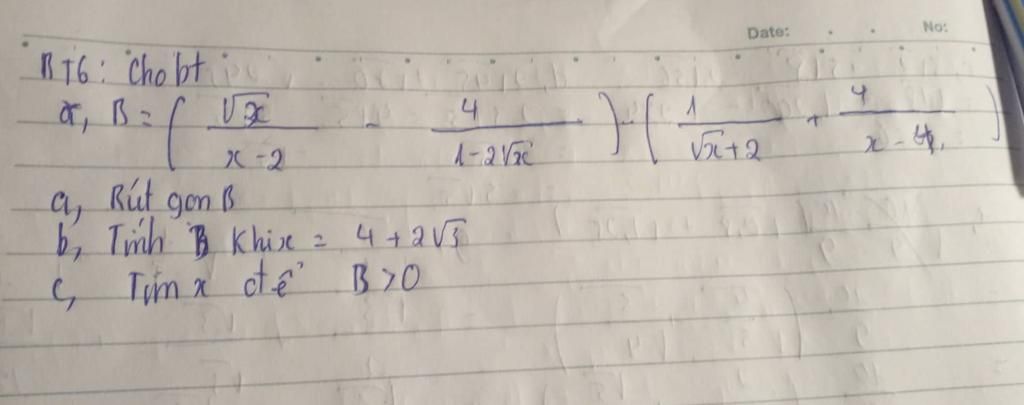 Date: No:
BT6: Cho bt
B = ( √x / x - 2 - 4 / 1 - 2√x ) - ( 1 / √x + 2 + 4 / x - 4 )
a, Rút gọn B
b, Tính B khi x = 4 + 2√3
c, Tìm x để B > 0